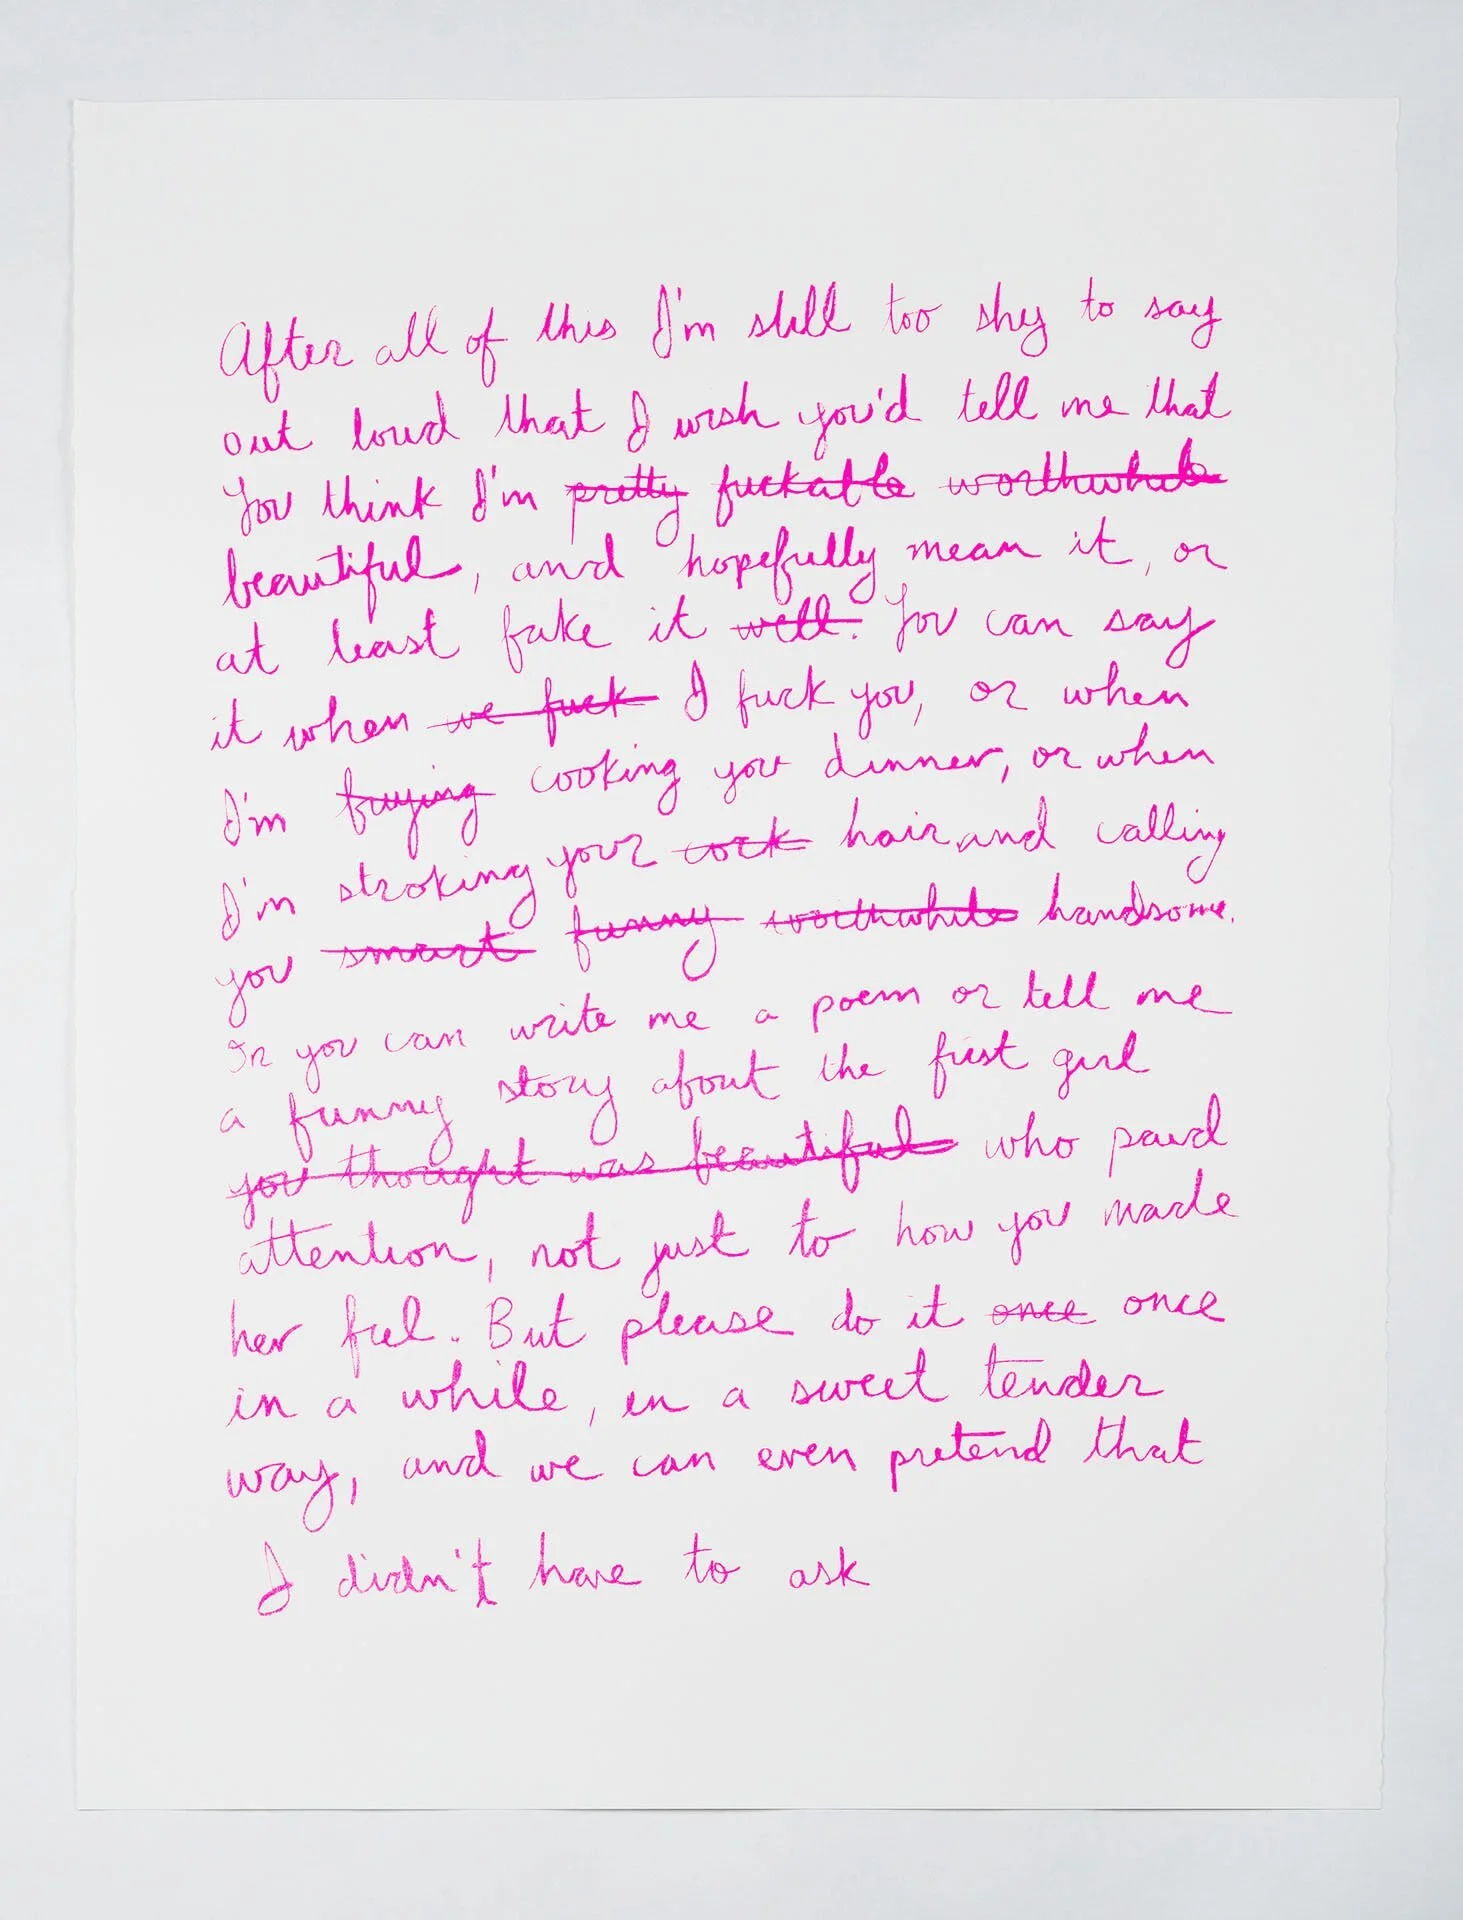 After all of this I'm still too shy to say
out loud that I wish you'd tell me that
You think I'm pretty fuckable worthwhile
beautiful, and hopefully mean it, or
at least fake it well. You can say
it when we fuck I fuck you, or when
I'm buying cooking you dinner, or when
I'm stroking your cock hair, and calling
you smart funny worthwhile handsome.
Or you can write me a poem or tell me
a funny story about the first girl
you thought was beautiful who paid
attention, not just to how you made
her feel. But please do it once once
in a while, in a sweet tender
way, and we can even pretend that
I didn't have to ask